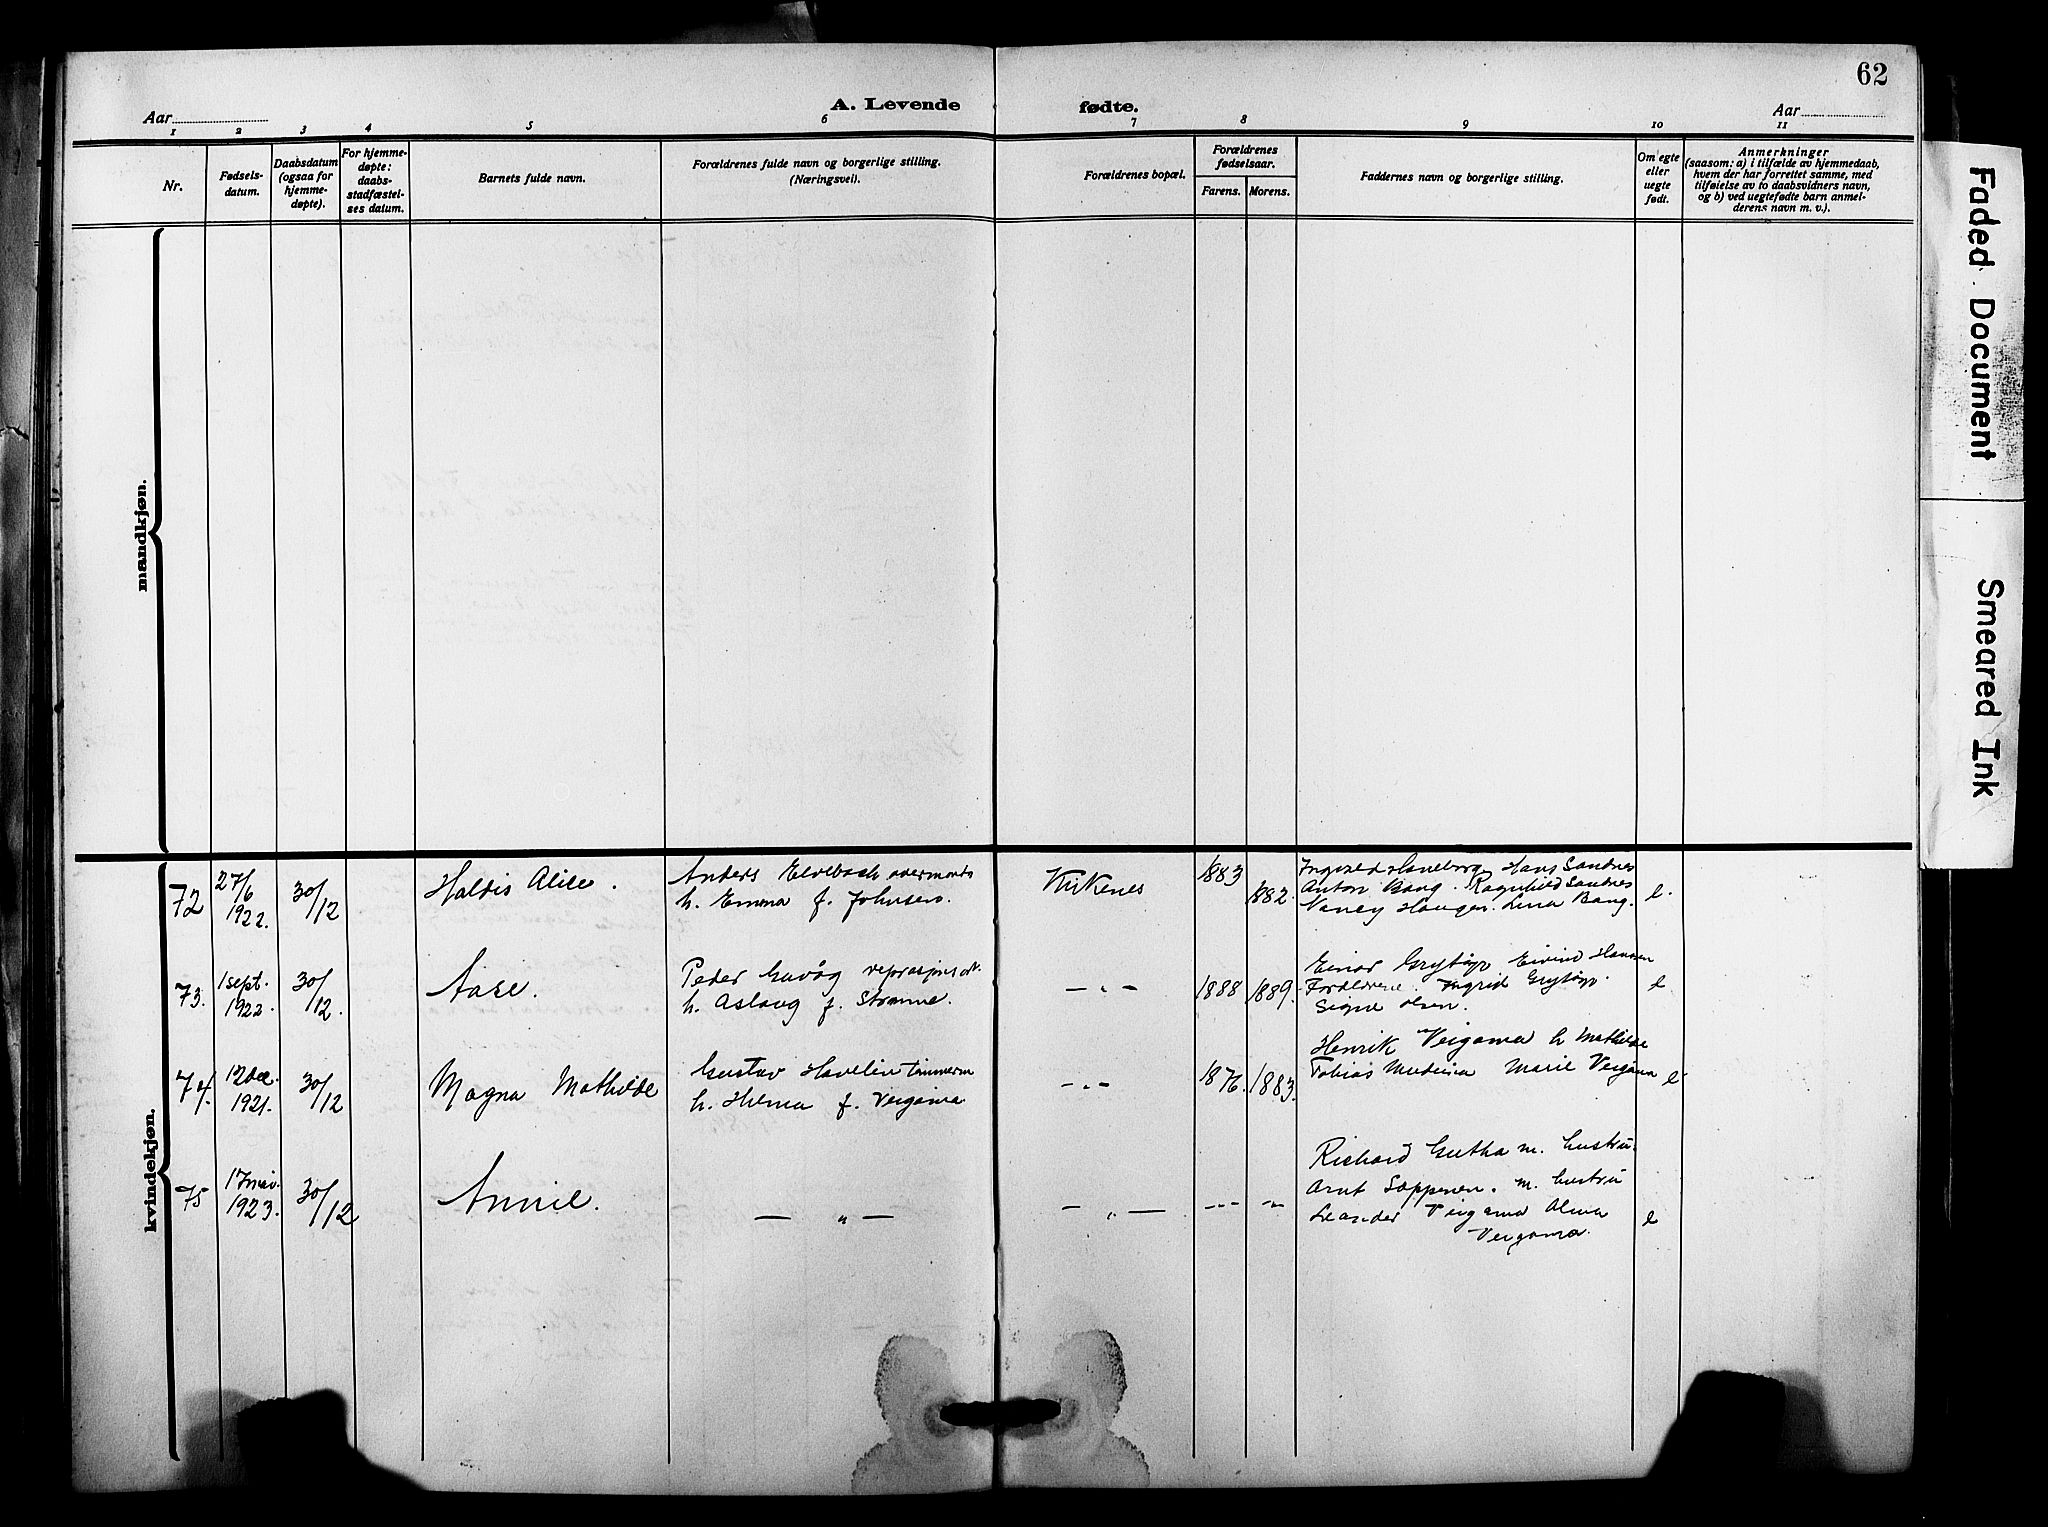 62
A. Levende fødte.
Aar
Aar
1 2 3 4 5 6 7 8 9 10 11
Nr.
Fødsels-
datum.
Daabsdatum
(ogsaa for
hjemme-
døpte).
For hjemme-
døpte:
daabs-
stadfæstel-
ses datum.
Barnets fulde navn.
Forældrenes fulde navn og borgerlige stilling.
(Næringsvei).
Forældrenes bopæl.
Forældrenes
fødselsaar.
Farens. Morens.
Faddernes navn og borgerlige stilling.
Om egte
eller
uegte
født.
Anmerkninger
(saasom: a) i tilfælde av hjemmedaab,
hvem der har forrettet samme, med
tilføielse av to daabsvidners navn,
og b) ved uegtefødte barn anmel-
derens navn m. v.).
mandkjøn.
kvindekjøn.
72
27/6
1922.
30/12
Haldis Alice.
Anders
h. Emma f. Johnsen.
Kirkenes
1883
1882.
Hans Sandnes
Anton Bang. Ragnhild Sandnes
Nancy Haugen. Lina Bang.
e.
73.
1 sept.
1922.
30/12.
Aase.
Peder
h. Aslaug f. Strømme.
— „ —
1888 1889.
Einar Eivind Hansen
Foreldrene. Ingrid
Signe Olsen.
e
74.
12 dec.
1921.
30/12
Magna Mathilde
Gustav Havelin
h. Hilma f. Veigama
— „ —
1876. 1883.
Henrik Veigama h Mathilde
Tobias Marie Veigama
e
75
17
1923.
30/12
Annie.
— „ —
— „ —
— „ —
— „ —
Richard m. hustru.
Arnt m. hustru
Leander Veigama Alma
Veigama.
e
Faded Document
Smeared Ink